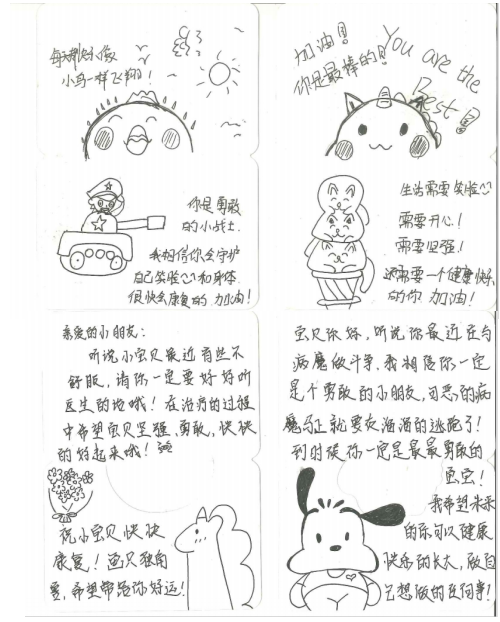 每天都快乐像
小鸟一样飞翔！
加油！
你是最棒的！
You are the
Best！
你是勇敢
的小战士.
我相信你会守护
自己笑脸和身体
很快会康复的 加油！
生活需要笑脸
需要开心！
需要坚强！
还需要一个健康快乐
的你 加油！
亲爱的小朋友：
听说小宝贝最近有些不
舒服，请你一定要好好听
医生的话哦！在治疗的过程
中希望宝贝坚强、勇敢，快快
的好起来哦！
祝小宝贝快快
康复！画只独角
兽，希望带给你好运！
宝贝你好，听说你最近在与
病魔做斗争，我相信你一定
是个勇敢的小朋友，可恶的病
魔马上就要灰溜溜的逃跑了！
到时候你一定是最最勇敢的
宝宝！
我希望未来
的你可以健康
快乐的长大，做自
己想做的任何事！